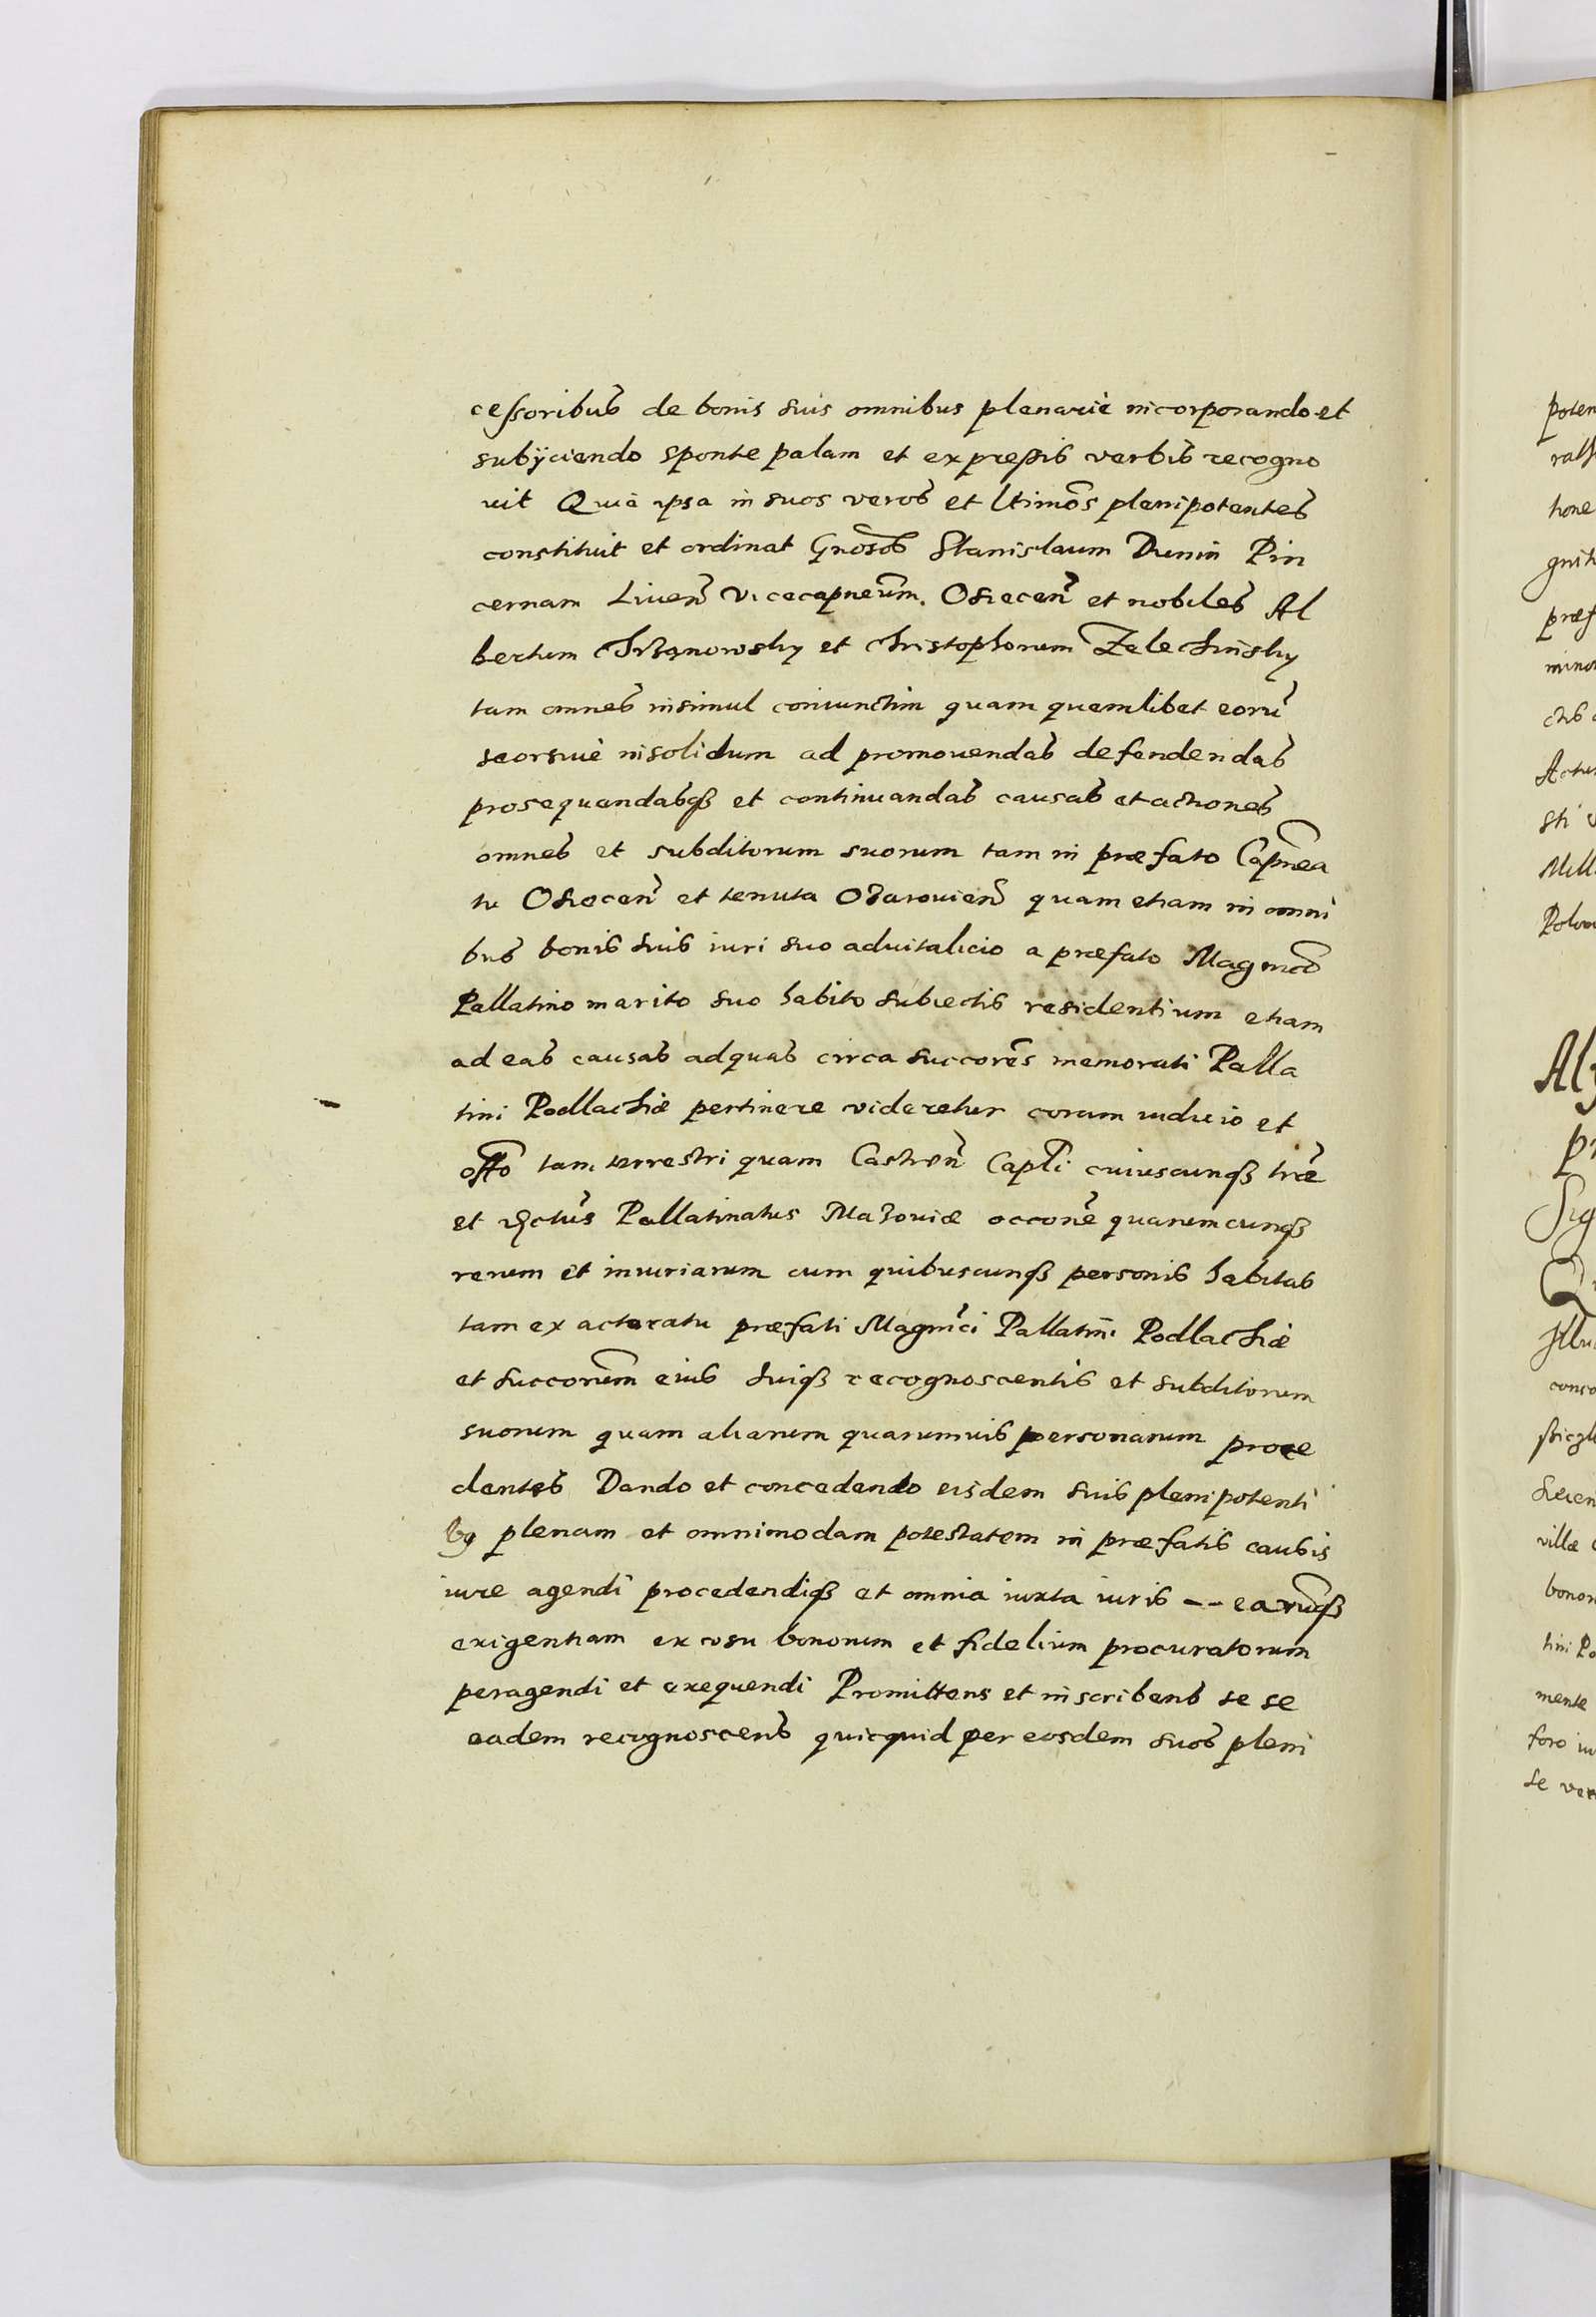 cessoribus de bonis suis omnibus plenariè incorporando et
subÿciendo sponte palam et expressis verbis recogno
uit Quia ipsa in suos veros et Ltimos plenipotentes
constituit et ordinat Gnosos Stanislaum Dunin Pin
cernam Liuen Vicecapneum. Osiecen et nobiles Al
bertum Chrzanowsky et Christophorum Zelechinsky
tam omnes insimul coniunctim quam quemlibet eoru
seorsiuè insolidum ad promouendas defendendas
prosequendasq3 et continuandas causas et actiones
omnes et subditorum suorum tam in præfato Capnea
tu Osiecen et tenuta Ozarouien quam etiam in omni
bus bonis suis iuri suo aduitalicio a præfato Magnco
Pallatino marito suo habito subiectis residentium etiam
ad eas causas ad quas circa succores memorati Palla
tini Podlachiæ pertinere videretur coram iudicio et
offo tam terrestri quam Castren Capli cuiuscunq3 træ
et rictus Pallatinatus Mazouiæ occone quarumcunq3
rerum et iniuriarum cum quibuscunq3 personis habitas
tam ex actoratu præfati Magnici Pallatini Podlachiæ
et succorum eius suiq3 recognoscentis et subditorum
suorum quam aliarum quarumuis personarum proce
dentes Dando et concedendo eisdem suis plenipotenti
bq plenam et omnimodam potestatem in præfatis causis
iure agendi procedendiq3 et omnia iuxta iuris -- earuq3
exigentiam ex cosu bonorum et fidelium procuratorum
peragendi et exequendi Promittens et inscribens se se
eadem recognoscens quicquid per eosdem suos pleni